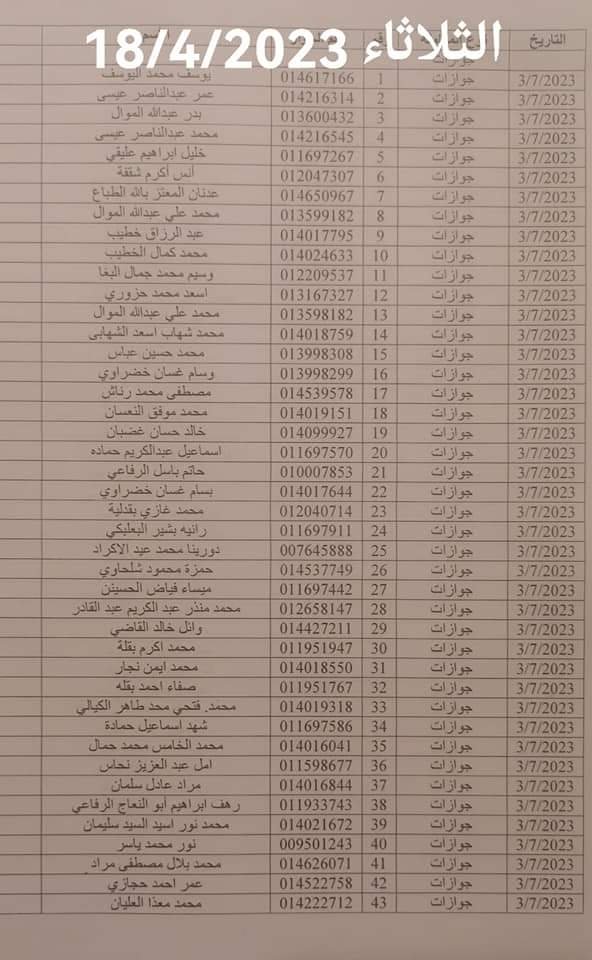 الثلاثاء 18/4/2023
التاريخ
جوازات
3/7/2023 جوازات 1 014617166 يوسف محمد اليوسف
3/7/2023 جوازات 2 014216314 عمر عبدالناصر عيسى
3/7/2023 جوازات 3 013600432 بدر عبدالله الموال
3/7/2023 جوازات 4 014216545 محمد عبدالناصر عيسى
3/7/2023 جوازات 5 011697267 خليل ابراهيم عليقي
3/7/2023 جوازات 6 012047307 أنس أكرم شقفة
3/7/2023 جوازات 7 014650967 عدنان المعتز بالله الطباع
3/7/2023 جوازات 8 013599182 محمد علي عبدالله الموال
3/7/2023 جوازات 9 014017795 عبد الرزاق خطيب
3/7/2023 جوازات 10 014024633 محمد كمال الخطيب
3/7/2023 جوازات 11 012209537 وسيم محمد جمال البغا
3/7/2023 جوازات 12 013167327 اسعد محمد حزوري
3/7/2023 جوازات 13 013598182 محمد علي عبدالله الموال
3/7/2023 جوازات 14 014018759 محمد شهاب اسعد الشهابي
3/7/2023 جوازات 15 013998308 محمد حسين عباس
3/7/2023 جوازات 16 013998299 وسام غسان خضراوي
3/7/2023 جوازات 17 014539578 مصطفى محمد رناش
3/7/2023 جوازات 18 014019151 محمد موفق النعسان
3/7/2023 جوازات 19 014099927 خالد حسان غضبان
3/7/2023 جوازات 20 011697570 اسماعيل عبدالكريم حماده
3/7/2023 جوازات 21 010007853 حاتم باسل الرفاعي
3/7/2023 جوازات 22 014017644 بسام غسان خضراوي
3/7/2023 جوازات 23 012040714 محمد غازي بقدلية
3/7/2023 جوازات 24 011697911 رانيه بشير البعلبكي
3/7/2023 جوازات 25 007645888 دورينا محمد عيد الاكراد
3/7/2023 جوازات 26 014537749 حمزة محمود شلحاوي
3/7/2023 جوازات 27 011697442 ميساء فياض الحسينن
3/7/2023 جوازات 28 012658147 محمد منذر عبد الكريم عبد القادر
3/7/2023 جوازات 29 014427211 وائل خالد القاضي
3/7/2023 جوازات 30 011951947 محمد اكرم بقلة
3/7/2023 جوازات 31 014018550 محمد ايمن نجار
3/7/2023 جوازات 32 011951767 صفاء احمد بقله
3/7/2023 جوازات 33 014019318 محمد. فتحي محد طاهر الكيالي
3/7/2023 جوازات 34 011697586 شهد اسماعيل حمادة
3/7/2023 جوازات 35 014016041 محمد الخامس محمد حمال
3/7/2023 جوازات 36 011598677 امل عبد العزيز نحاس
3/7/2023 جوازات 37 014016844 مراد عادل سلمان
3/7/2023 جوازات 38 011933743 رهف ابراهيم أبو النعاج الرفاعي
3/7/2023 جوازات 39 014021672 محمد نور اسيد السيد سليمان
3/7/2023 جوازات 40 009501243 نور محمد ياسر
3/7/2023 جوازات 41 014626071 محمد بلال مصطفى مراد
3/7/2023 جوازات 42 014522758 عمر احمد حجازي
3/7/2023 جوازات 43 014222712 محمد معذا العليان